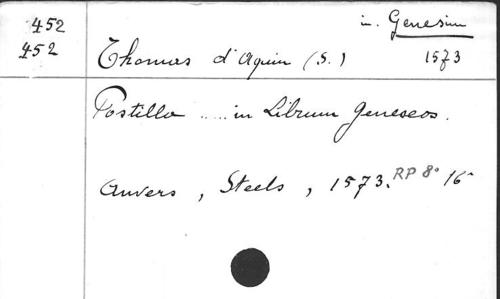 452
in. Genesim
452
Thomas d'Aquin (S.) 1573
Postilla ..... in Librum Geneseos.
Anvers, Steels, 1573. RP 8° 16°